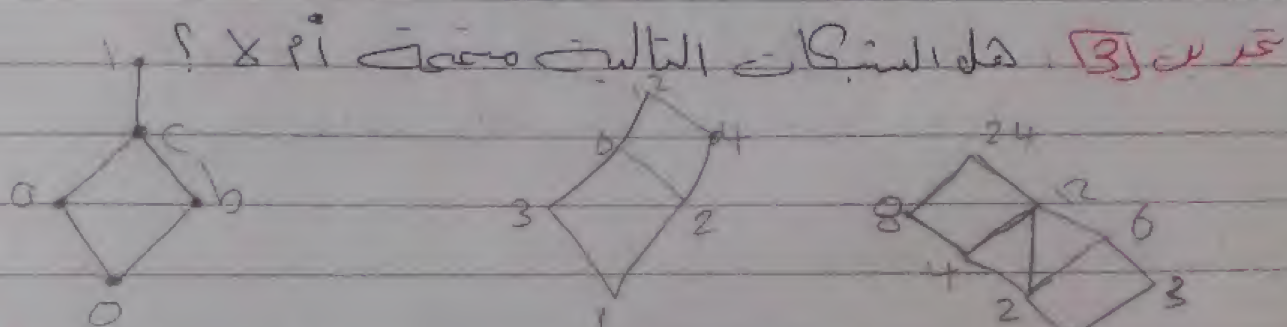 تمرين [3]. هل الشبكات التالية متممة أم لا ؟
1
c
a b
0
12
6 4
3 2
1
24
8 12 6
4
2 3